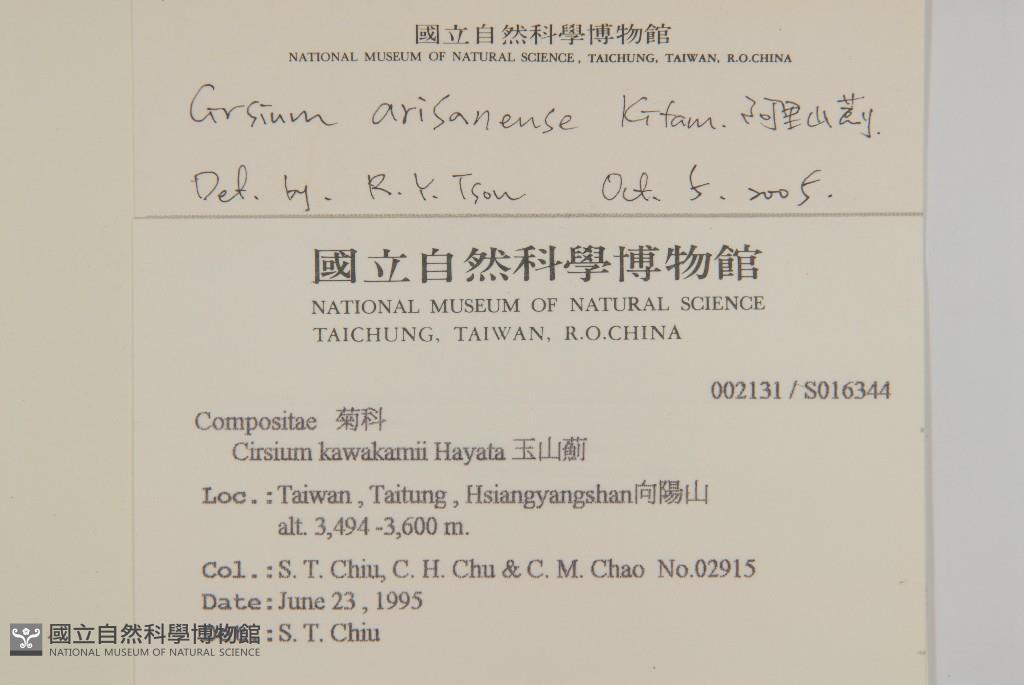 國立自然科學博物館
NATIONAL MUSEUM OF NATURAL SCIENCE, TAICHUNG, TAIWAN, R.O.CHINA
Cirsium arisanense Kitam. 阿里山薊.
Det. by. R. Y. Tsou Oct. 5. 2005.
國立自然科學博物館
NATIONAL MUSEUM OF NATURAL SCIENCE
TAICHUNG, TAIWAN, R.O.CHINA
002131 / S016344
Compositae 菊科
Cirsium kawakamii Hayata 玉山薊
Loc.:Taiwan , Taitung , Hsiangyangshan向陽山
alt. 3,494 -3,600 m.
Col.:S. T. Chiu, C. H. Chu & C. M. Chao No.02915
Date:June 23 , 1995
:S. T. Chiu
國立自然科學博物館
NATIONAL MUSEUM OF NATURAL SCIENCE